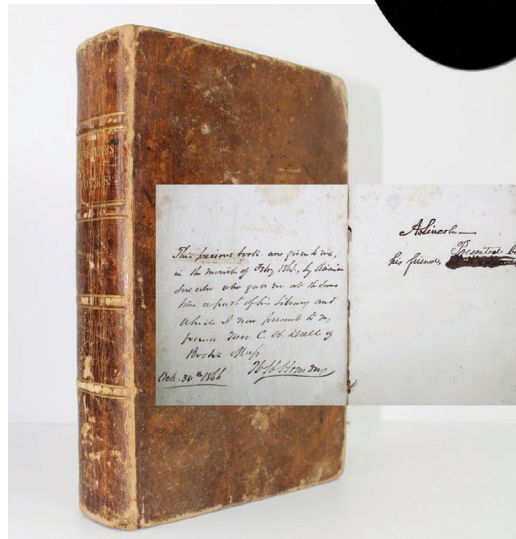 This precious book was given to me,
in the month of Feby 1861, by Abraham
Lincoln who gave me at the same
time a part of his library and
which I now present to my
friend Mrs. C. H. Dall of
Boston Mass
Oct. 30th 1866 W H Herndon
A Lincoln—
Presented b
his friend,